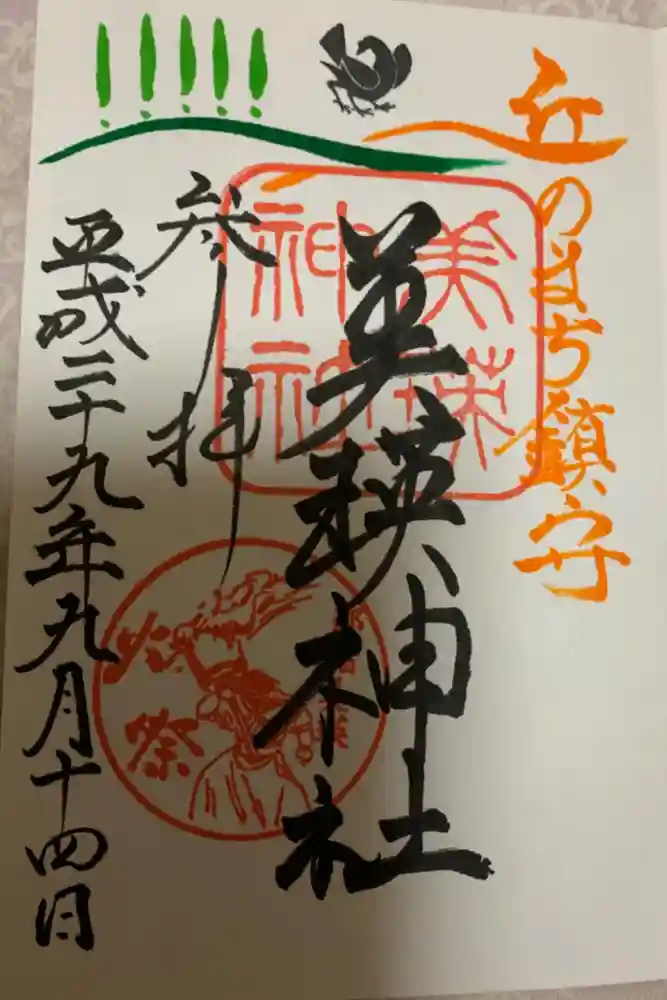 丘のまち鎮守
美瑛神社
美瑛
神社
参拝
火祭
平成二十九年九月十四日